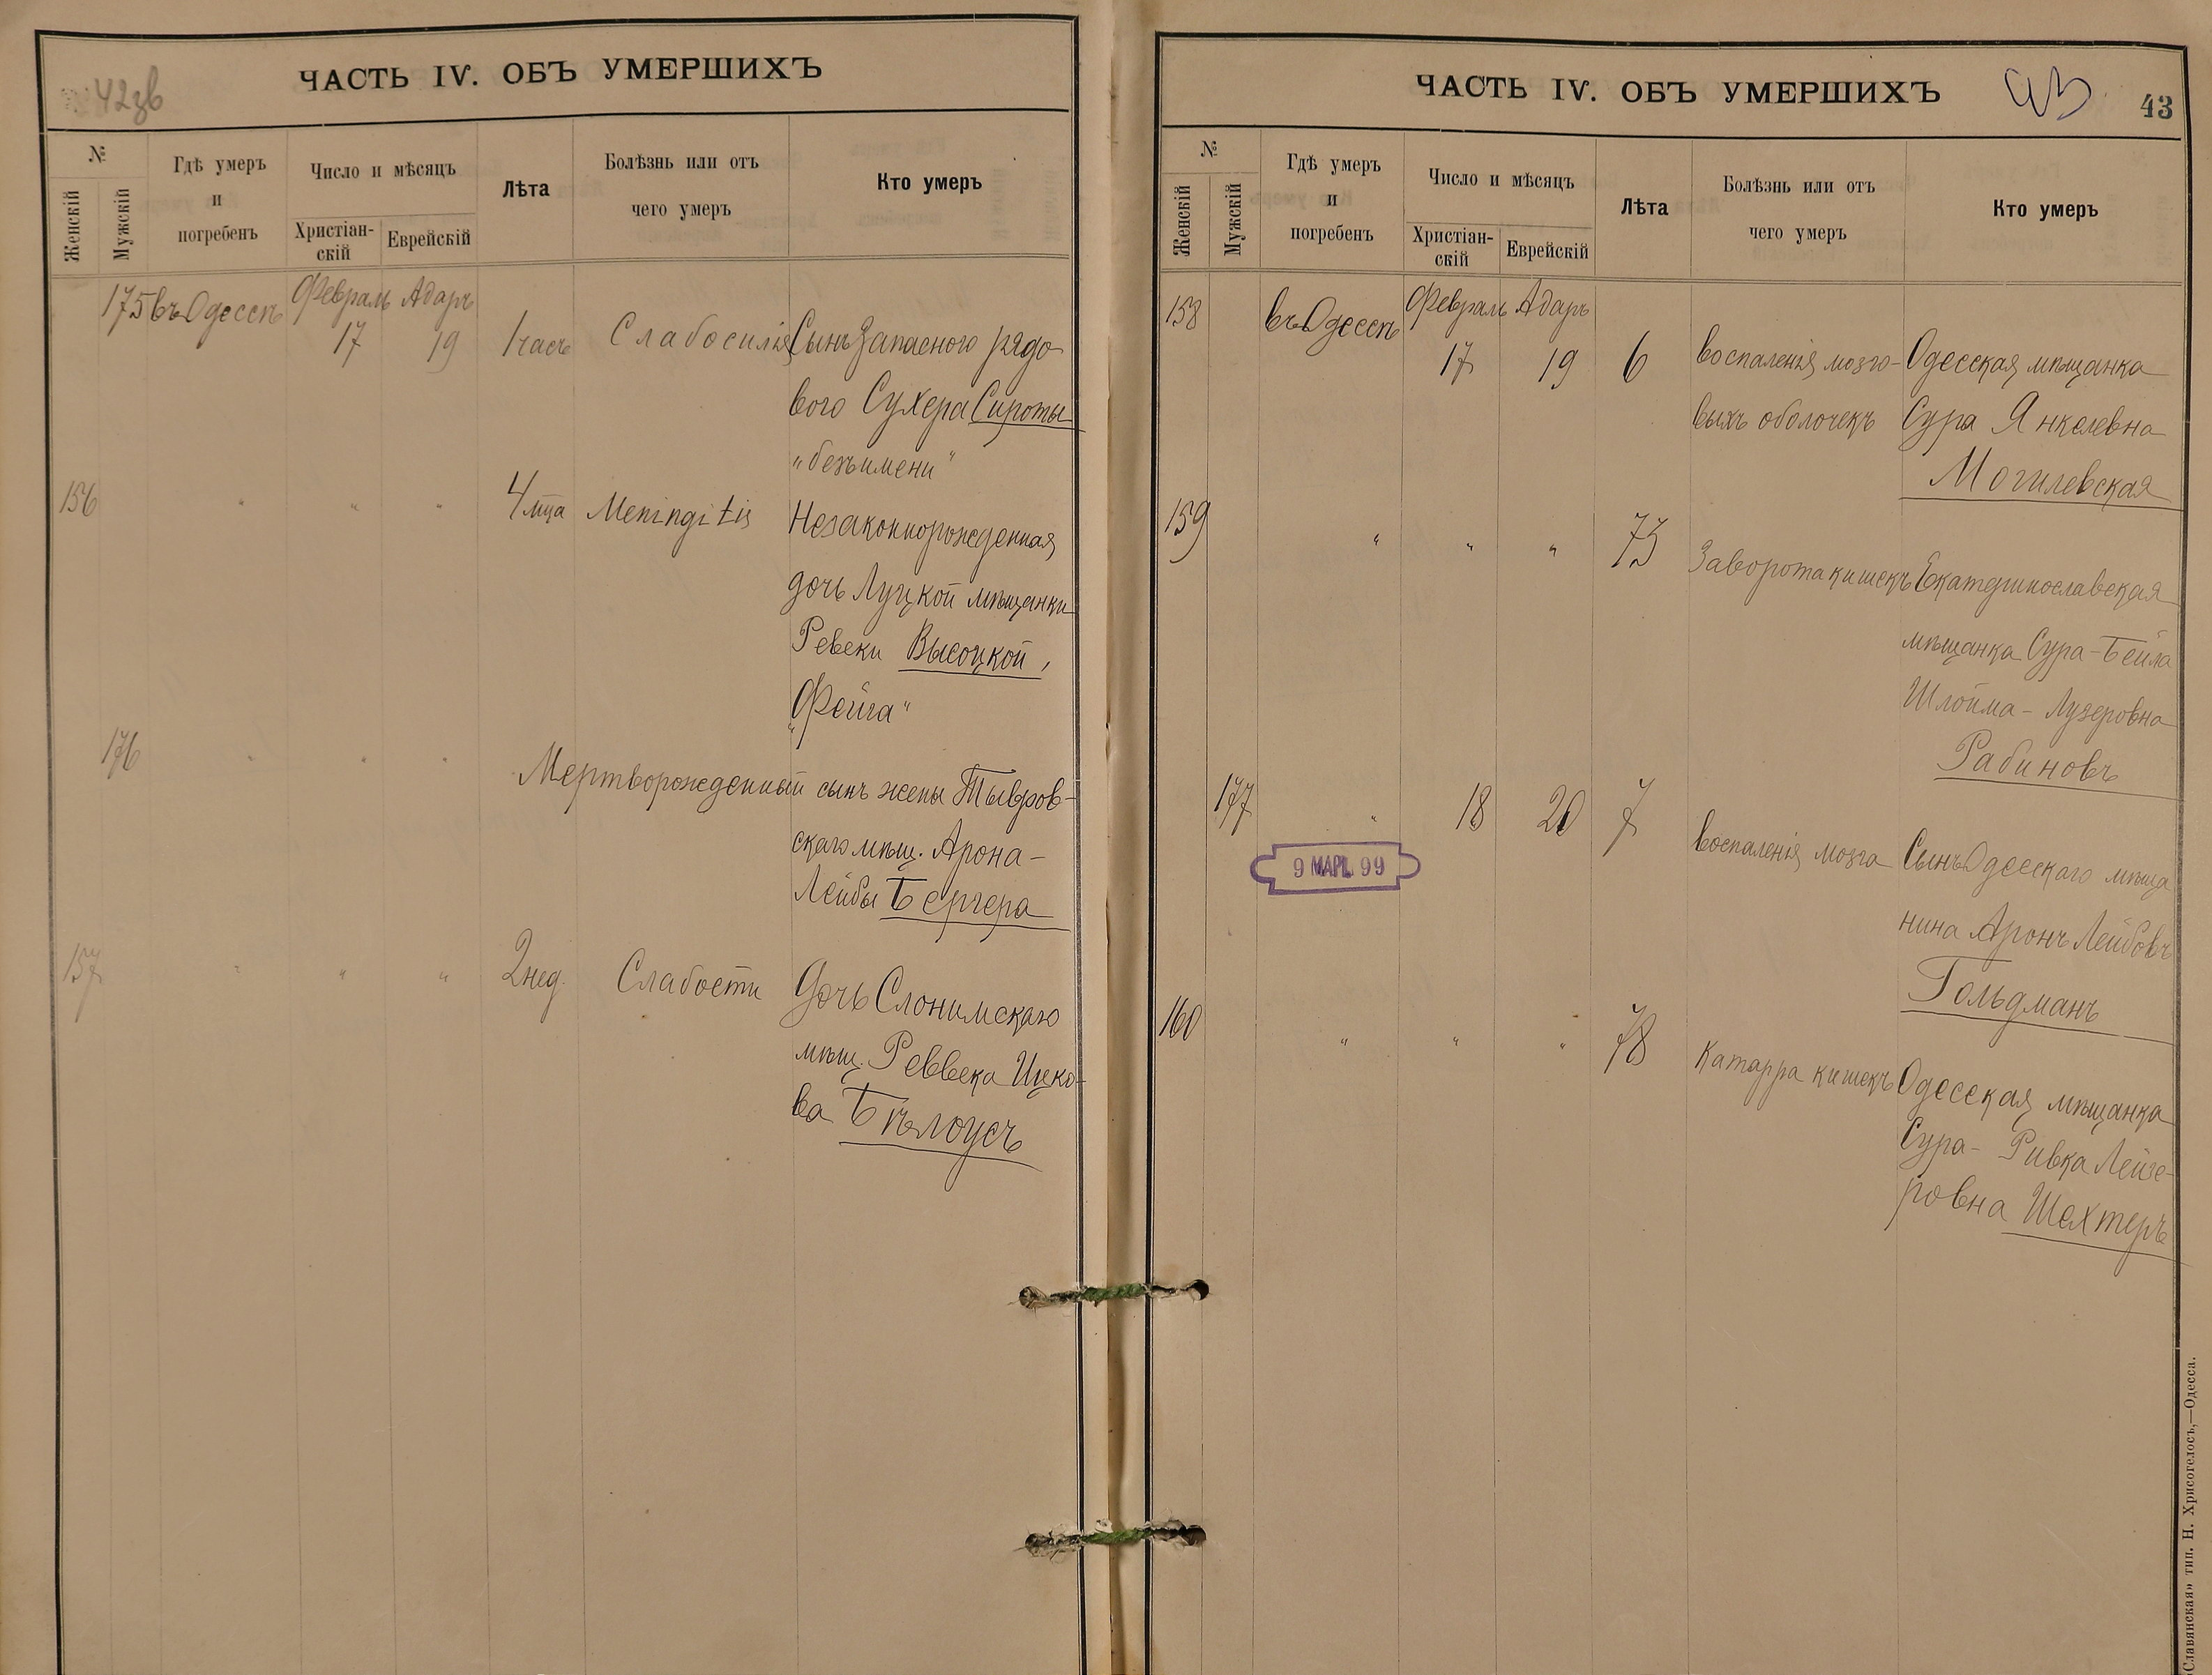 42зв
ЧАСТЬ IV. ОБЪ УМЕРШИХЪ
№
Женскій
Мужскій
Гдѣ умеръ
и
погребенъ
Число и мѣсяцъ
Христіан-
скій
Еврейскій
Лѣта
Болѣзнь или отъ
чего умеръ
Кто умеръ
175 въ Одессѣ Февраль Адаръ
17 19 1 часъ Слабосилія Сынъ Запасного рядо
вого Сухера Сироты
"безъ имени"
156 " " " 4 мца Meningitis Незаконнорожденная
дочь Луцкой мѣщанки
Ревеки Высоцкой,
"Фейга"
176 " " " Мертворожденный сынъ жены Тывров-
скаго мѣщ. Арона-
Лейбы Бергера
157 " " " 2 нед. Слабости Дочь Слонимскаго
мѣщ. Реввека Ицко-
ва Бѣлоусъ
ЧАСТЬ IV. ОБЪ УМЕРШИХЪ
43
43
№
Женскій
Мужскій
Гдѣ умеръ
и
погребенъ
Число и мѣсяцъ
Христіан-
скій
Еврейскій
Лѣта
Болѣзнь или отъ
чего умеръ
Кто умеръ
158 въ Одессѣ Февраль Адаръ
17 19 6 воспаленія мозго- Одесская мѣщанка
выхъ оболочекъ Сура Янкелевна
Могилевская
159 " " " 73 Заворота кишекъ Екатеринославская
мѣщанка Сура-Бейла
Шлойма-Лузеровна
Рабиновъ
177 " 18 20 7 воспаленія мозга Сынъ Одесскаго мѣща
нина Аронъ Лейбовъ
Гольдманъ
9 МАР. 99
160 " " " 78 Катарра кишекъ Одесская мѣщанка
Сура-Ривка Лейзе-
ровна Шехтеръ
Славянская» тип. Н. Хрисогелосъ,—Одесса.